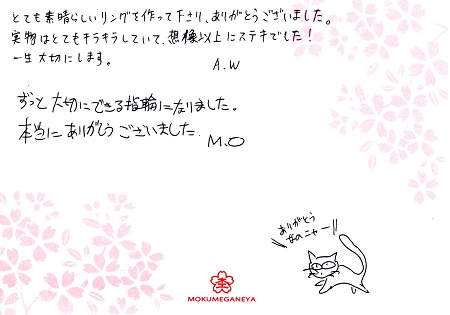 とても素晴らしいリングを作って下さり、ありがとうございました。
実物はとてもキラキラしていて、想像以上にステキでした！
一生大切にします。
A.W
ずっと大切にできる指輪になりました。
本当にありがとうございました.
M.O
ありがとう
なのニャー!!
MOKUMEGANEYA